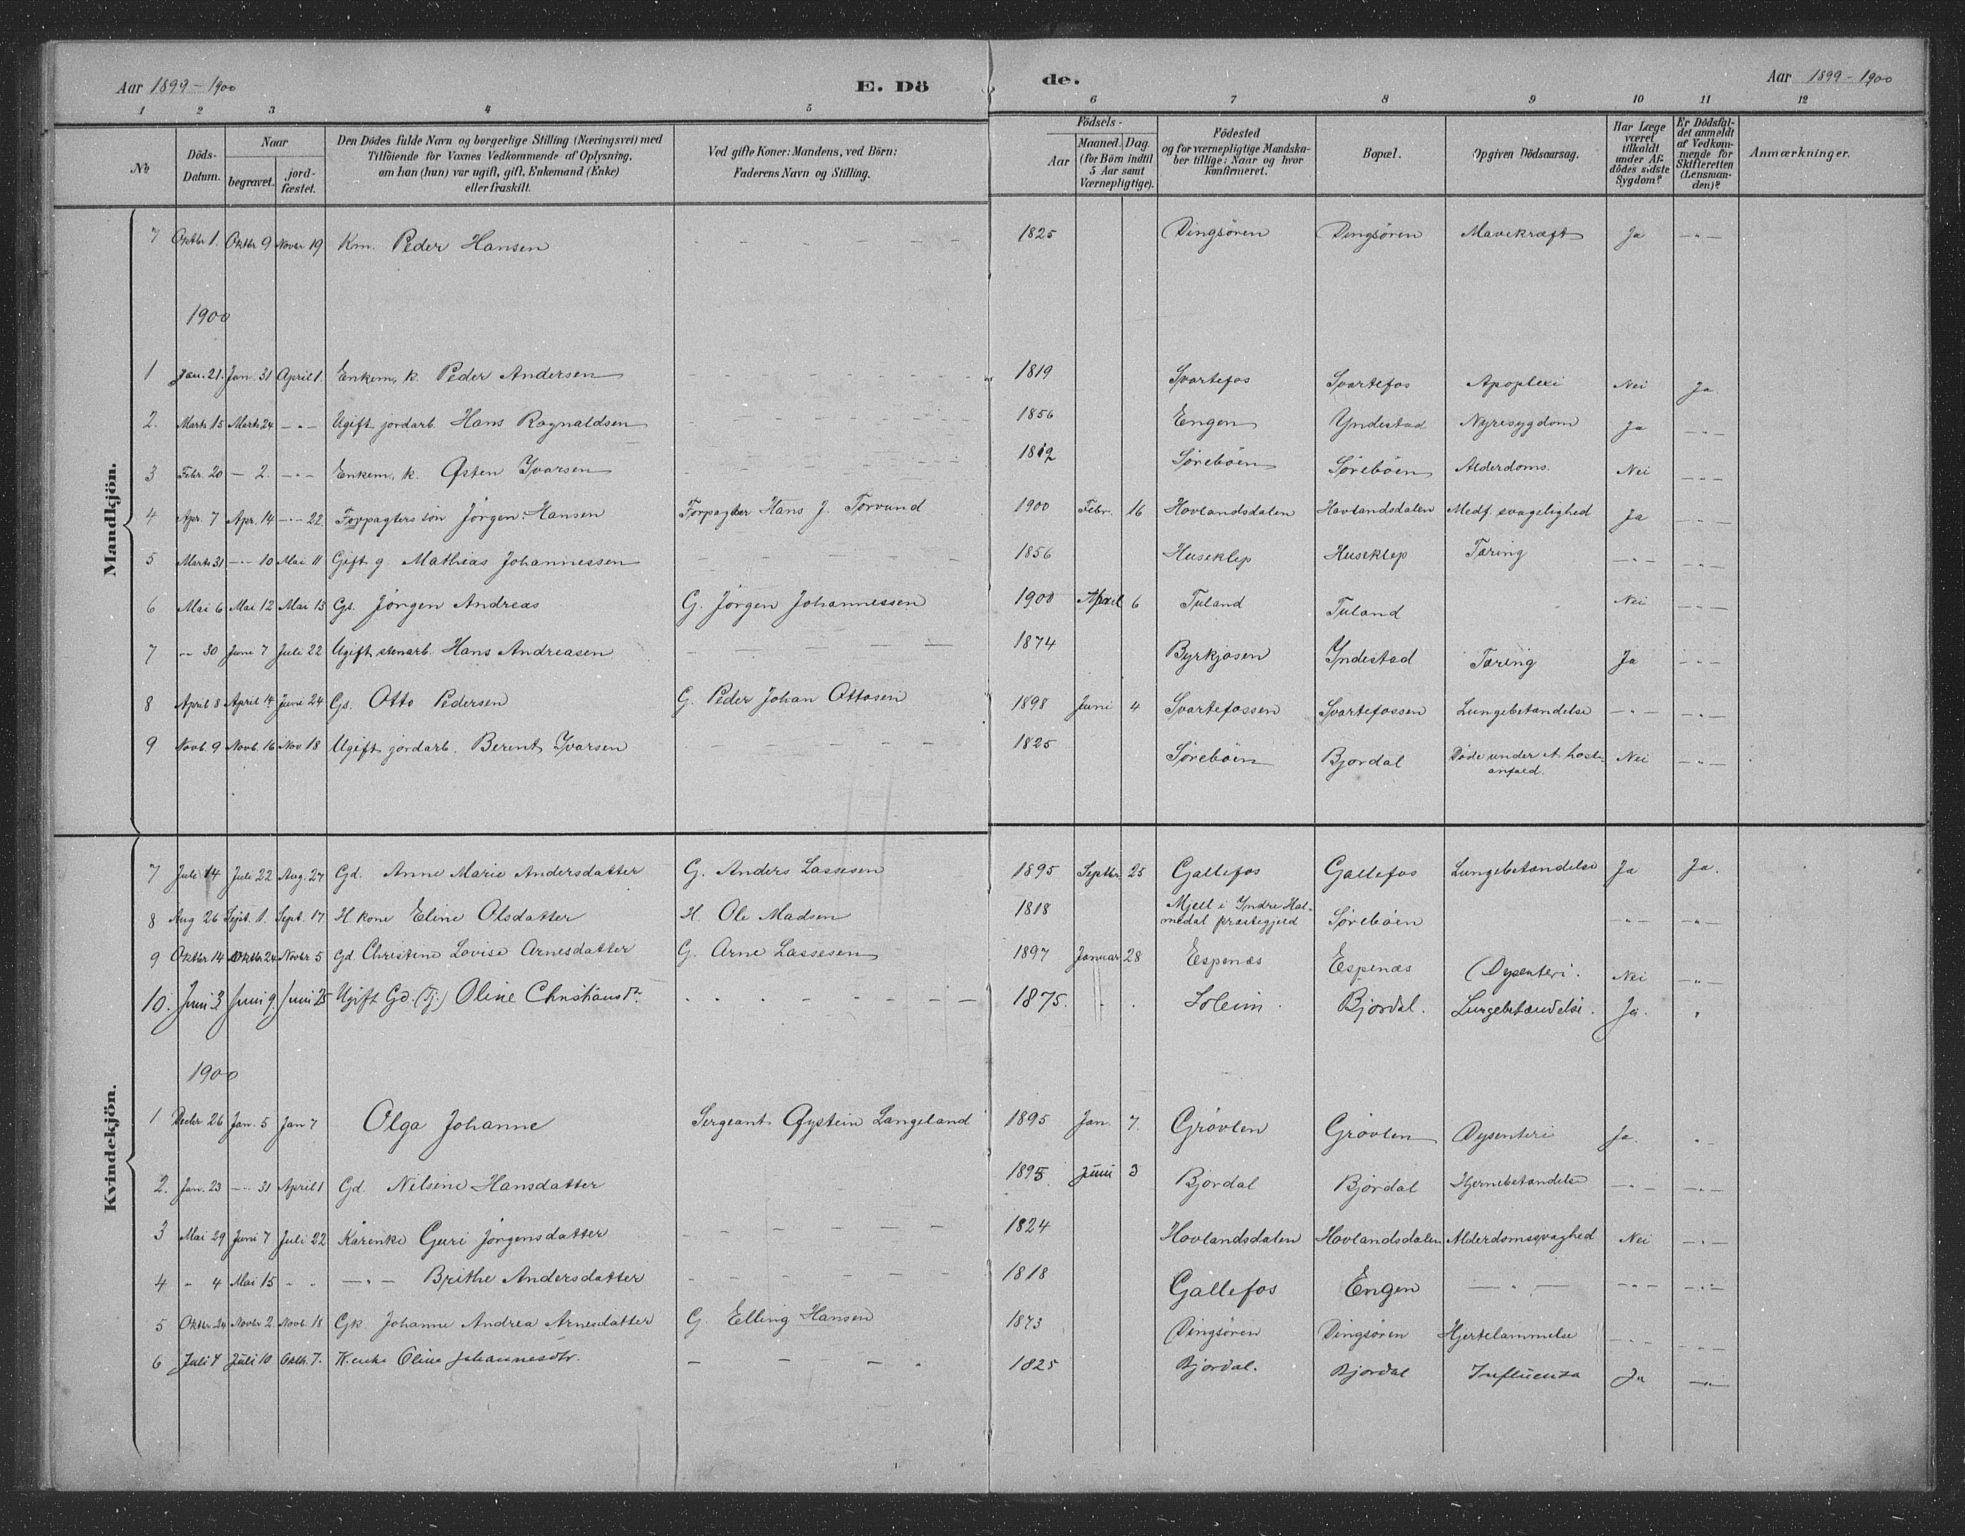 Aar 1899 - 1900 E. Dö de. Aar 1899 - 1900
1 2 3 4 5 6 7 8 9 10 11 12
No
Döds-Datum.
Naar begravet. jordfæstet.
Den Dödes fulde Navn og borgerlige Stilling (Næringsvei) med Tilföiende for Voxnes Vedkommende af Oplysning, om han (hun) var ugift, gift, Enkemand (Enke) eller fraskilt.
Ved gifte Koner: Mandens, ved Börn: Faderens Navn og Stilling.
Födsels- Aar Maaned. Dag. (for Börn indtil 5 Aar samt Værnepligtige).
Födested og for værnepligtige Mandskaber tillige: Naar og hvor konfirmeret.
Bopæl.
Opgiven Dödsaarsag.
Har Læge været tilkaldt under Afdødes sidste Sygdom?
Er Dödsfaldet anmeldt af Vedkommende for Skifteretten (Lensmanden)?
Anmærkninger.
Mandkjön.
7 Oktbr 1. Oktbr 9 Novbr 19 Km. Peder Hansen - - - - - 1825 Dingsören Dingsören Mavekræft Ja - " -
1900
1 Jan. 21. Jan. 31 April 1. Enkem. k. Peder Andersen - - - - - 1819 Svartefos Svartefos Apoplexi Nei Ja
2. Marts 15 Marts 24 - " - Ugift jordarb. Hans Ragnaldsen - - - - - 1856 Engen Yndestad Nyresygdom Ja - " -
3 Febr. 20 - 2. - " - Enkem. k. Østen Ivarsen - - - - - 1812 Sørebøen Sørebøen Alderdoms. Nei - " -
4 Apr. 7 Apr. 14 - " - 22 Forpagters søn Jørgen Hansen Forpagter Hans J. Torvund 1900 Febr. 16 Hovlandsdalen Hovlandsdalen Medf. svagelighed Ja - " -
5 Marts 31 - " - 10 Mai 11 Gift g Mathias Johannessen - - - - - 1856 Huseklep Huseklep Tæring - " - - " -
6 Mai 6 Mai 12 Mai 13 Gs. Jørgen Andreas G. Jørgen Johannessen 1900 April 6 Tuland Tuland Nei - " -
7 - " - 30 Juni 7 Juli 22 Ugift stenarb. Hans Andreasen - - - - - 1874 Byrkjosen Yndestad Tæring Ja - " -
8 April 8 April 14 Juni 24 Gs. Otto Pedersen G. Peder Johan Ottosen 1898 Juni 4 Svartefossen Svartefossen Lungebetændelse - " - - " -
9 Novb. 9 Novb. 16 Nov 18 Ugift jordarb. Berent Ivarsen - - - - - 1825 Sørebøen Bjordal Döde under et hosteanfald. Nei - " -
Kvindekjön.
7 Juli 14 Juli 22 Aug. 27 Gd. Anne Marie Andersdatter G. Anders Lassesen 1895 Septbr. 25 Gallefos Gallefos Lungebetændelse Ja Ja.
8 Aug 26 Sept. 1. Sept. 17 H kone Eline Olsdatter H. Ole Madsen 1818 Mjell i Yndre Holmedal præstegjeld Sørebøen - " - - " -
9 Oktbr 14 Oktbr 24 Novbr 5 Gd. Christine Lovise Arnesdatter G. Arne Lassesen 1897 Januar 28 Espenæs Espenæs Dysenteri. Nei - " -
10. Juni 3 Juni 9. Juni 25 Ugift Gd. (Tj.) Oline Christiansdr. - - - - - 1875. Soleim. Bjordal. Lungebetændelse. Ja. "
1900
1 Decbr 26 Jan. 5 Jan 7 Olga Johanne Sergeant Øystein Langeland 1895 Jan. 7. Grøvlen Grøvlen Dysenteri Ja. " -
2. Jan. 23 - " - 31 April 1 Gd. Nilsine Hansdatter 1895 Juni 3 Bjordal Bjørdal Hjernebetændelse - " - - " -
3 Mai 29 Juni 7 Juli 22 Kårenke Guri Jørgensdatter - - - - - 1824 Hovlandsdalen Hovlandsdalen Alderdomssvaghed Nei - " -
4 " 4 Mai 15 " " - " - Brithe Andersdatter - - - - - 1818 Gallefos Engen - " - - " - - " -
5 Oktbr. 24 Novbr 2 Novb. 18 Gk. Johanne Andrea Arnesdatter G. Elling Hansen 1873 Dingsören Dingsören Hjertelammelse - " - - " -
6 Juli 4 Juli 10 Oktb. 7. K. enke Oline Johannesdtr. - - - - 1825 Bjordal. Bjordal Influenza Ja - " -